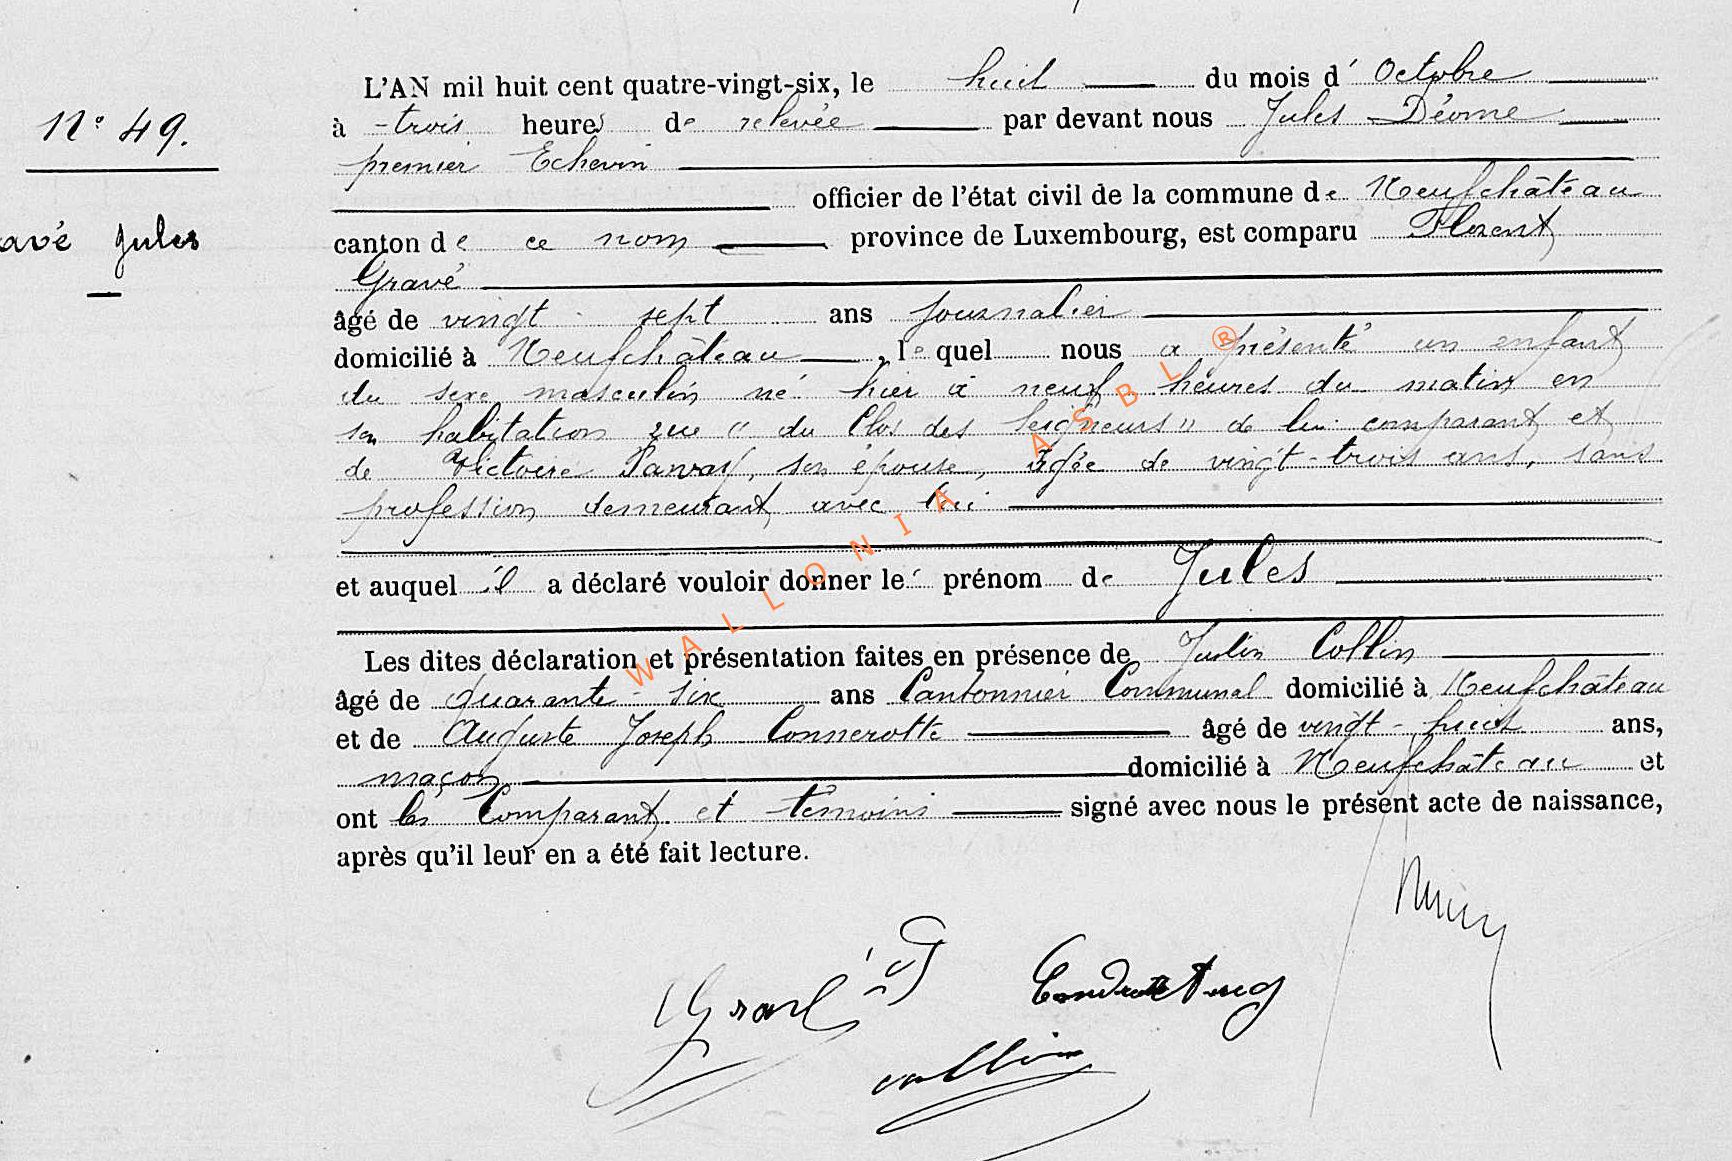 L'AN mil huit cent quatre-vingt-six, le huit du mois d' Octobre
N° 49.
à trois heures de relevée par devant nous Jules Déome
premier Echevin
officier de l'état civil de la commune de Neufchâteau
avé Jules
canton de ce nom province de Luxembourg, est comparu Florent
Gravé
âgé de vingt sept ans journalier
domicilié à Neufchâteau, lequel nous a présenté un enfant
du sexe masculin né hier à neuf heures du matin en
son habitation rue " du Clos des Seigneurs " de lui comparant et
de Victoire son épouse, âgée de vingt-trois ans, sans
profession demeurant avec lui
et auquel il a déclaré vouloir donner le prénom de Jules
Les dites déclaration et présentation faites en présence de Justin Collin
âgé de quarante-six ans Cantonnier Communal domicilié à Neufchâteau
et de Auguste Joseph Connerotte âgé de vingt-huit ans,
maçon domicilié à Neufchâteau et
ont les Comparant et témoins signé avec nous le présent acte de naissance,
après qu'il leur en a été fait lecture.
Gravé
Collin
WALLONIA ASBL ®